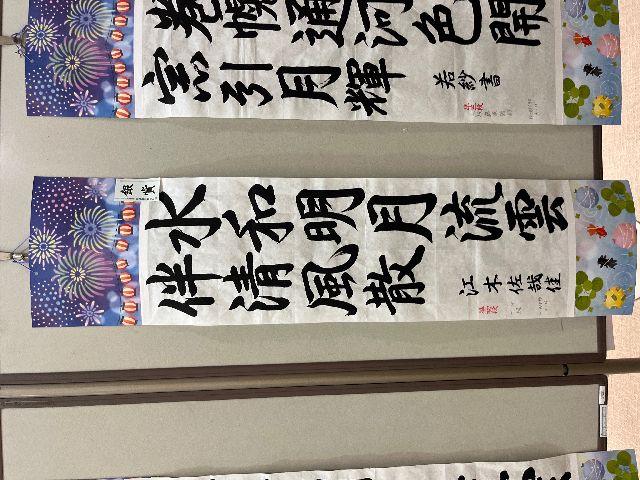 巻幌通河色開
窓引月輝
若紗書
銀賞
水和明月流雲
伴清風散
江木佐哉佳